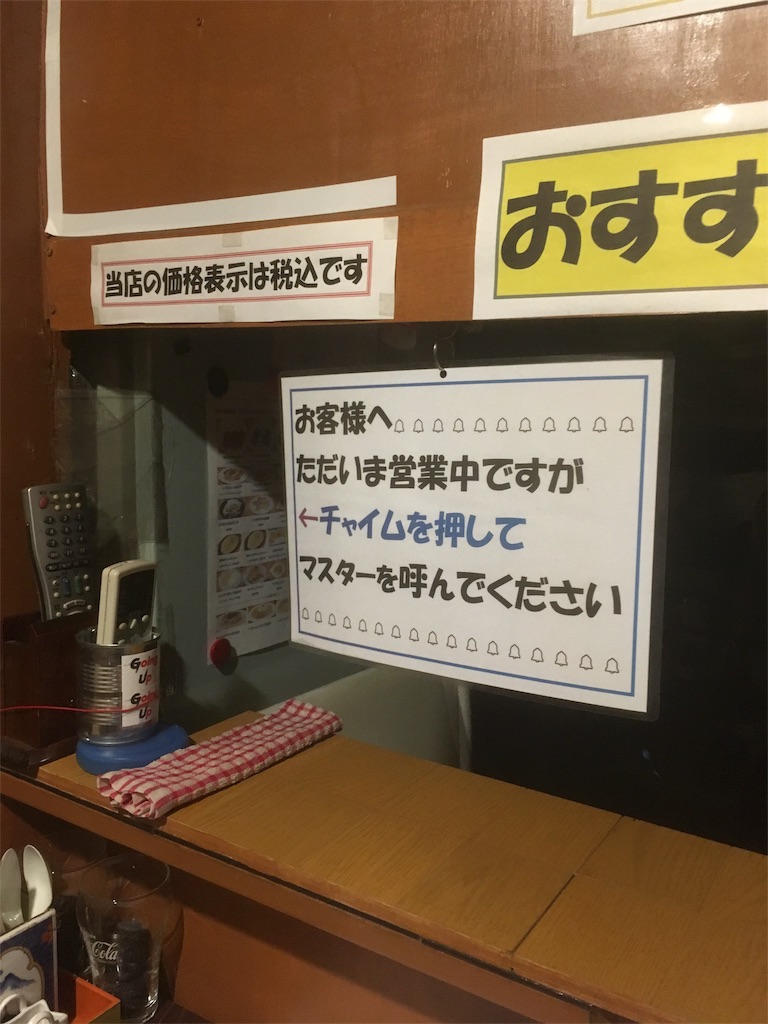 おすす
当店の価格表示は税込です
お客様へ
ただいま営業中ですが
←チャイムを押して
マスターを呼んでください
Going
Up
Going
Up
Cola